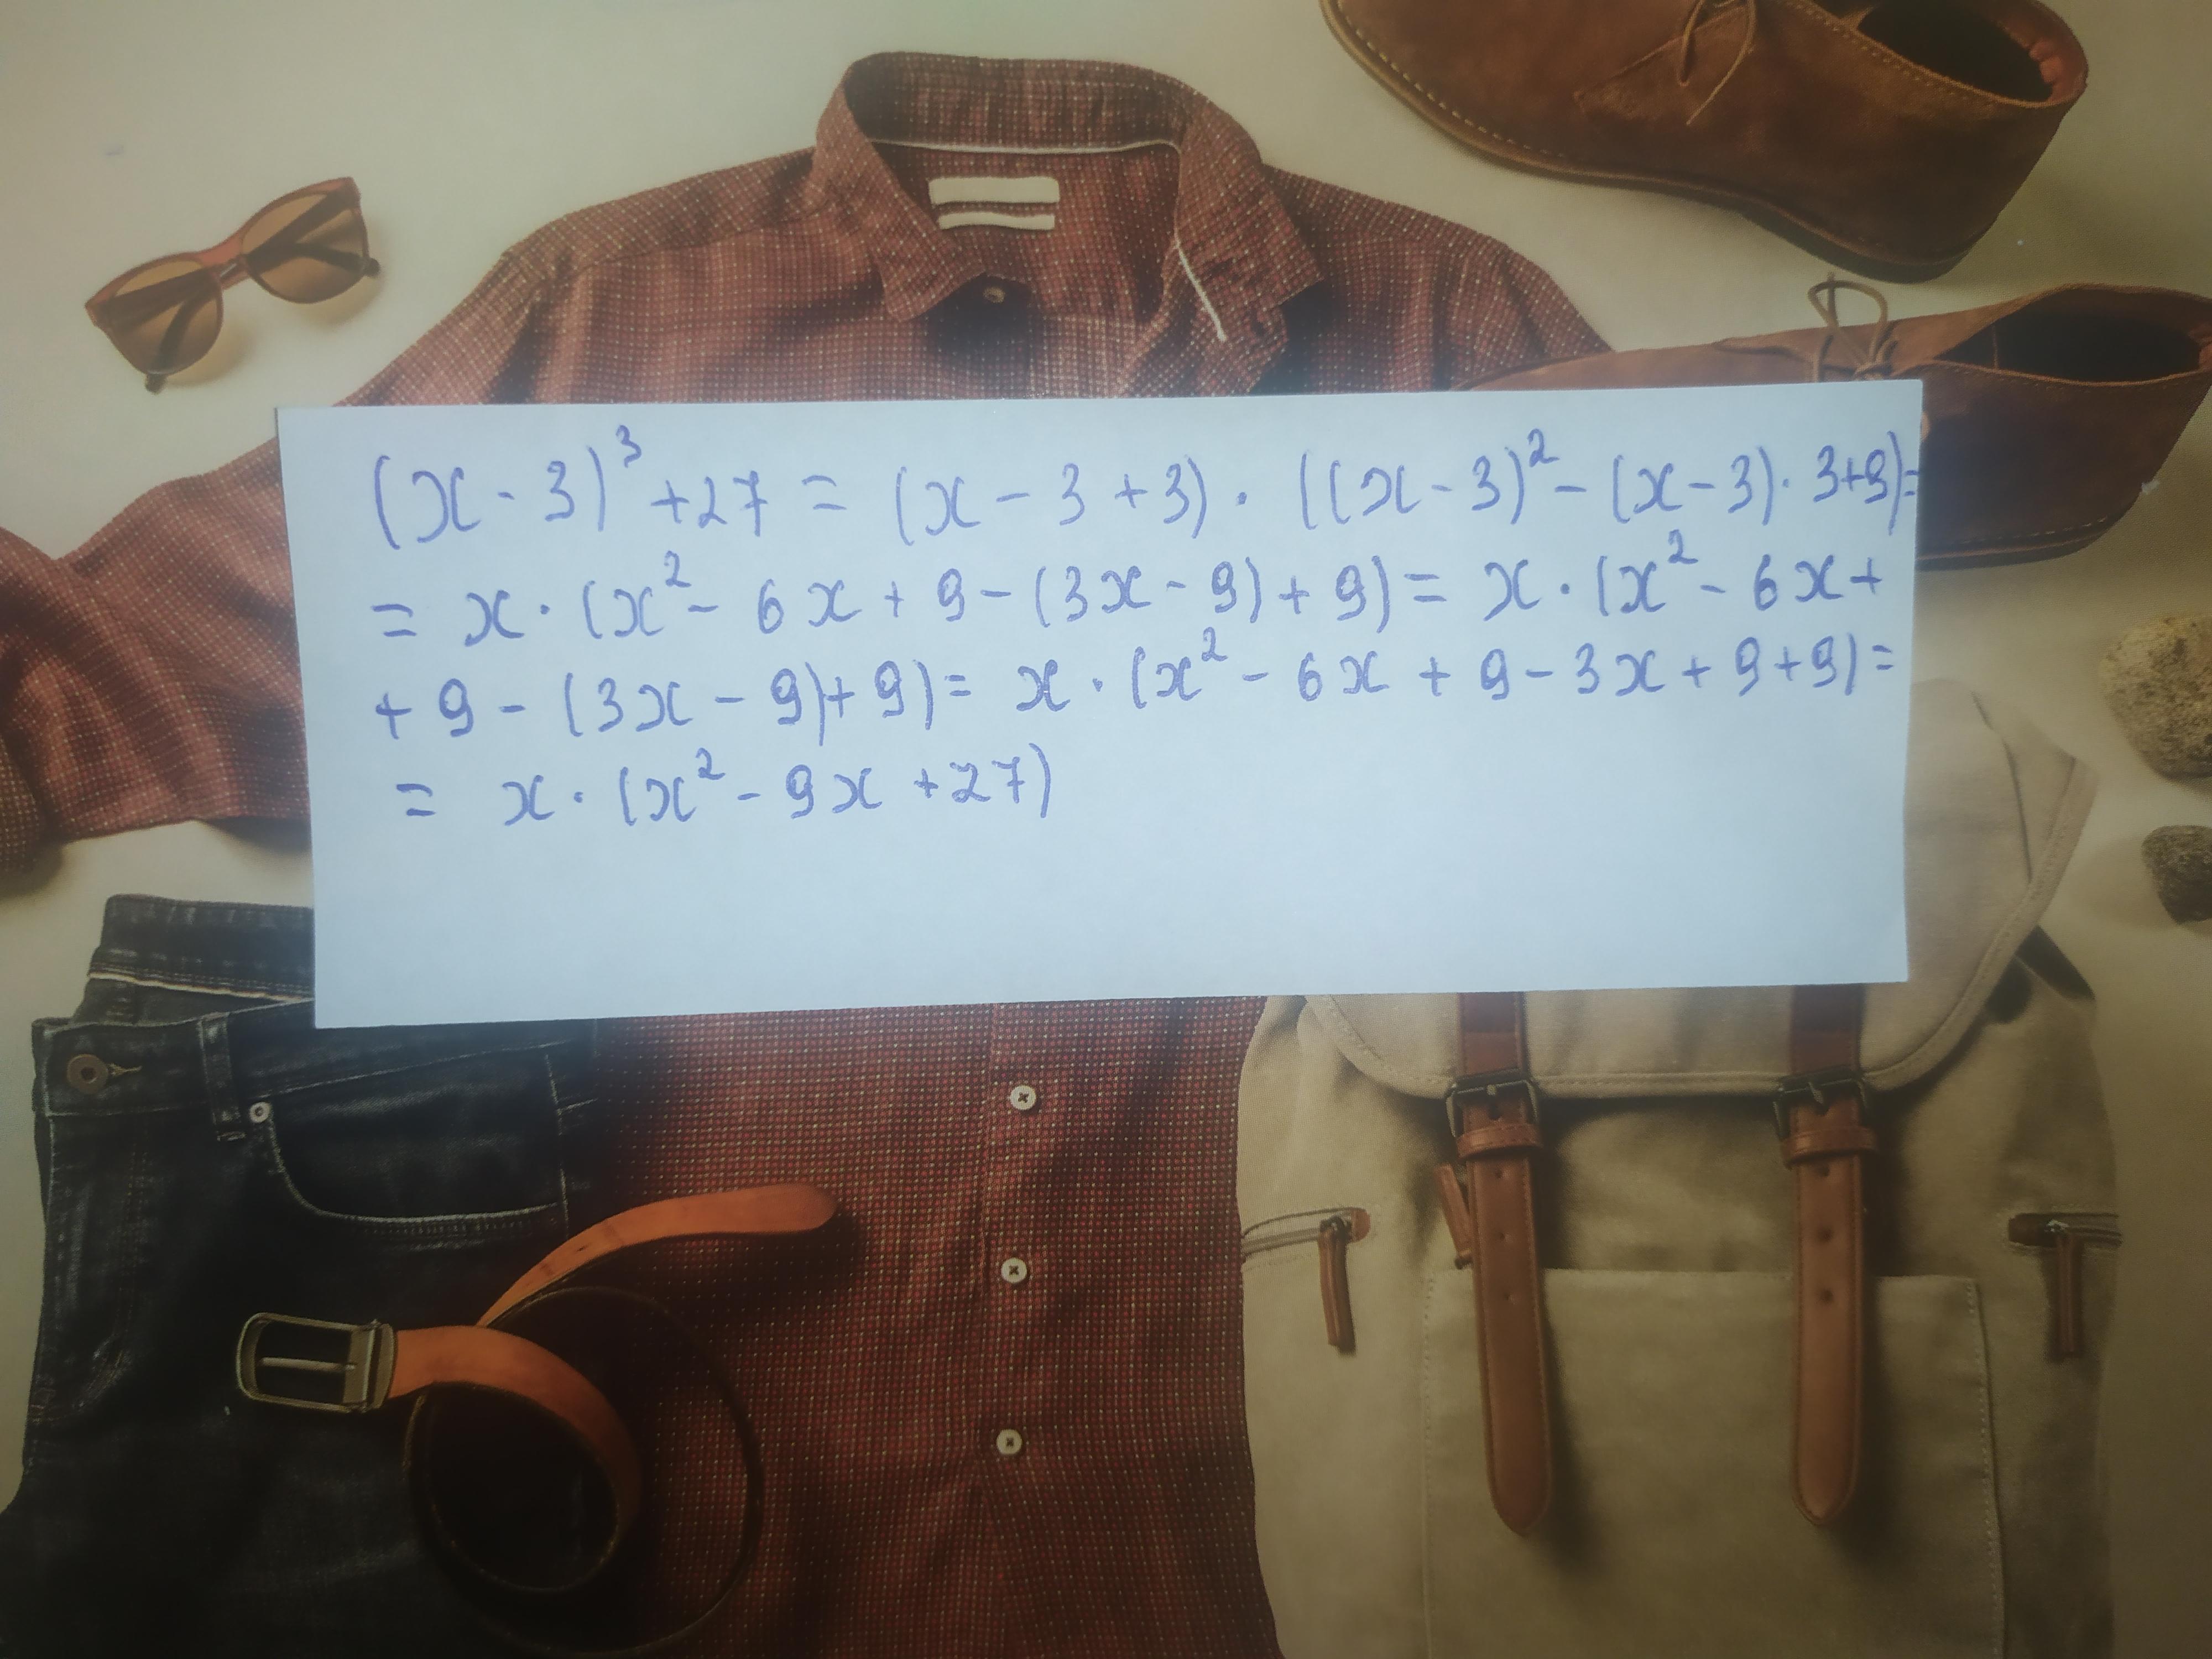 (x - 3)³ + 27 = (x - 3 + 3) · ((x - 3)² - (x - 3) · 3 + 9) =
= x · (x² - 6x + 9 - (3x - 9) + 9) = x · (x² - 6x +
+ 9 - (3x - 9) + 9) = x · (x² - 6x + 9 - 3x + 9 + 9) =
= x · (x² - 9x + 27)